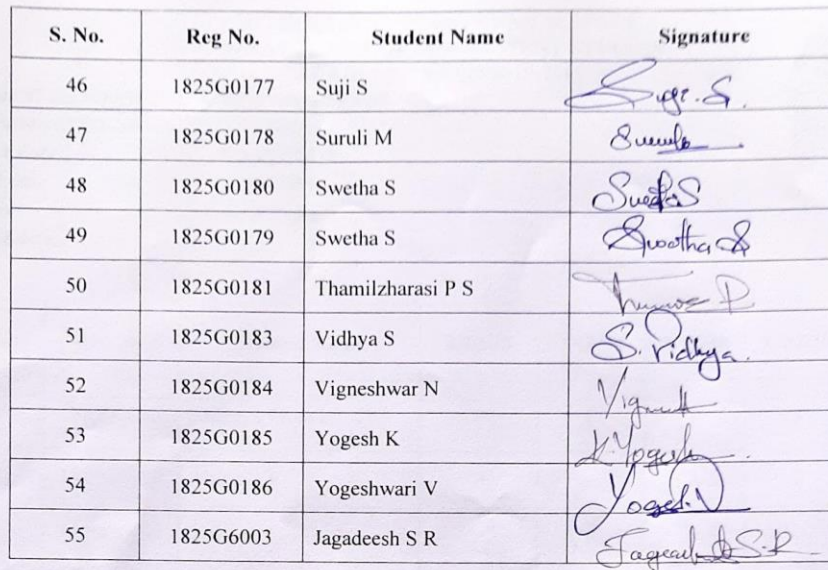 S. No. Reg No. Student Name Signature
46 1825G0177 Suji S Suji. S.
47 1825G0178 Suruli M
48 1825G0180 Swetha S Swetha S
49 1825G0179 Swetha S Swetha S
50 1825G0181 Thamilzharasi P S
51 1825G0183 Vidhya S S. Vidhya.
52 1825G0184 Vigneshwar N
53 1825G0185 Yogesh K K. Yogesh
54 1825G0186 Yogeshwari V Yoges. V
55 1825G6003 Jagadeesh S R Jagadeesh S.R